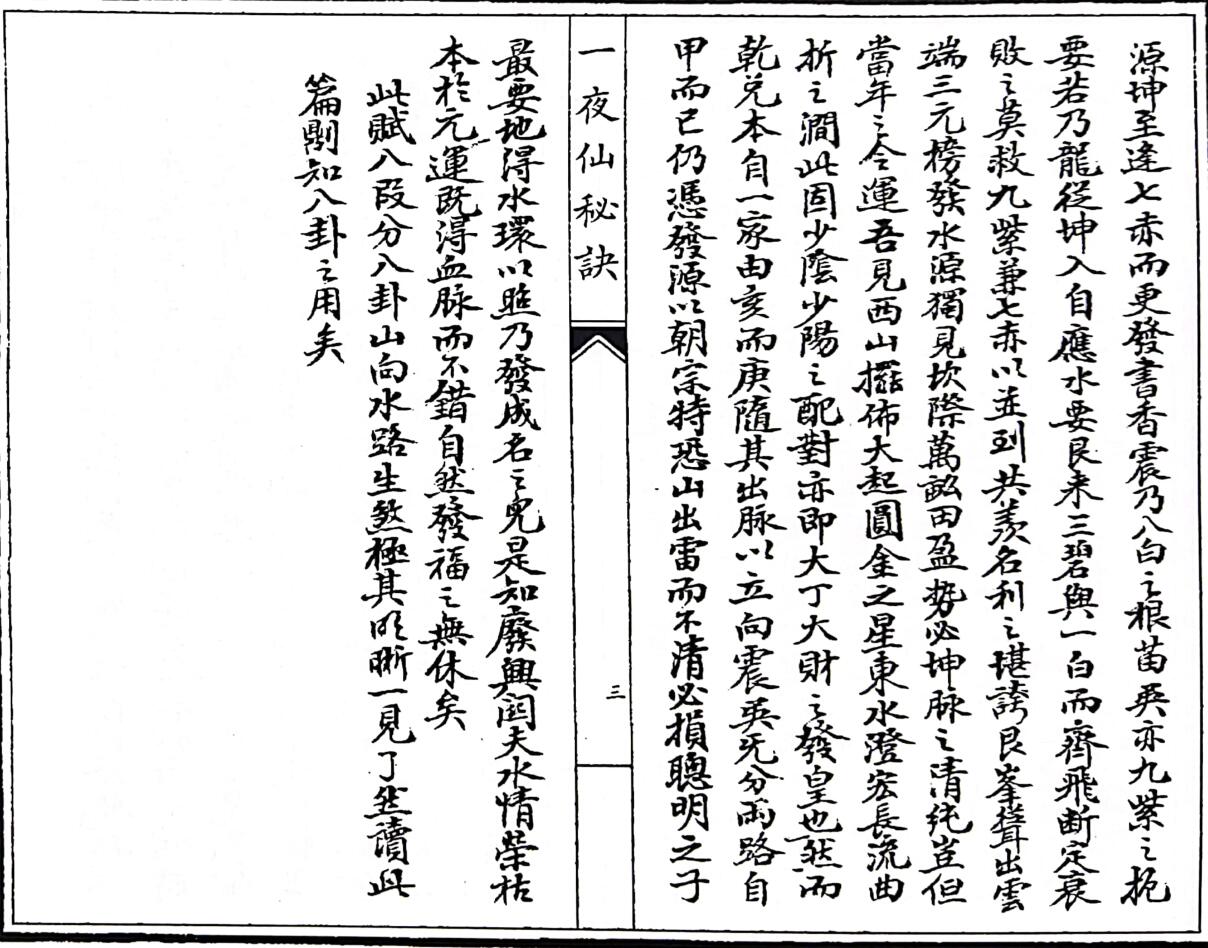 源坤至逢七赤而更發書香震乃八白之根苗巽亦九紫之扼
要若乃龍從坤入自應水要艮来三碧與一白而齊飛断定衰
敗之莫救九紫兼七赤以並到共羨名利之堪誇艮峯聳出雲
端三元榜發水源獨見坎際萬畝田盈势必坤脉之清纯豈但
當年之令運吾見西山擺佈大起圓金之星東水澄宏長流曲
折之澗此固少陰少陽之配對亦即大丁大財之發皇也然而
乾兌本自一家由亥而庚隨其出脉以立向震巽旣分両路自
甲而巳仍憑發源以朝宗特恐山出雷而不清必損聰明之子
一夜仙秘訣
三
最要地得水環以照乃發成名之兒是知廢興囙夫水情榮枯
本於元運既得血脉而不錯自然發福之無休矣
此賦八段分八卦山向水路生煞極其明晰一見了然讀此
篇則知八卦之用矣